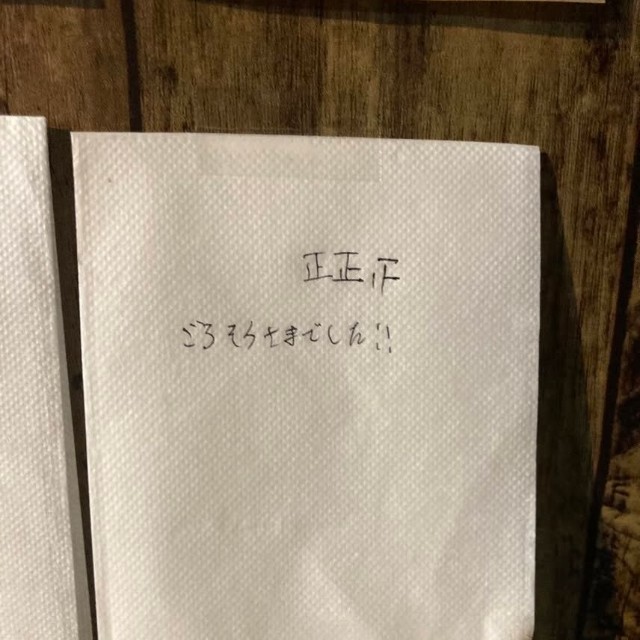 正正正
ごちそうさまでした!!